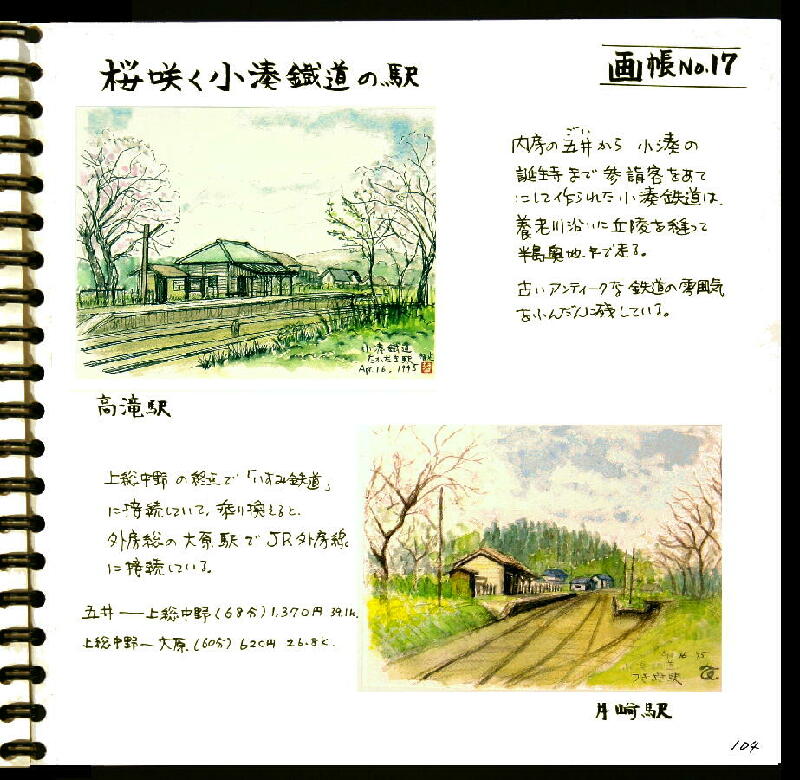 桜咲く小湊鐵道の駅
画帳No.17
内房の五井から 小湊の
ごい
誕生寺まで参詣客をあて
にして作られた小湊鉄道は、
養老川沿いに丘陵を縫って
半島奥地まで走る。
古いアンティークな鉄道の雰囲気
をふんだんに残している。
小湊鐵道
たかたき駅
Apr.16, 1995
高滝駅
上総中野の終点で「いすみ鉄道」
に接続していて、乗り換えると、
外房総の大原駅でJR外房線
に接続している。
五井——上総中野(68分)1,370円 39.1k.
上総中野—大原(60分)620円 26.8k.
16 '95
小湊鐵道
つきざき駅
月崎駅
104